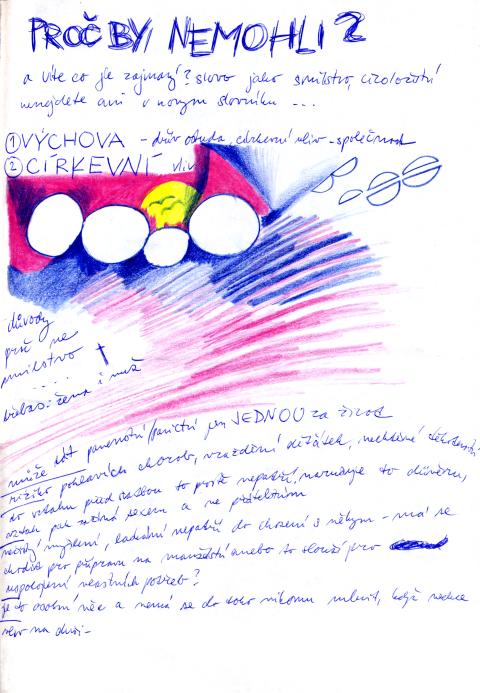 PROČ BY NEMOHLI?
a víte co je zajímavý? slovo jako smilstvo, cizoložství
nenajdete ani v novym slovníku ...
① VÝCHOVA - důvody, církevní vliv - společnost
② CÍRKEVNÍ vliv
důvody
proč ne
smilstvo
....
žena i muž
může dát panenství/panictví jen JEDNOU za život
riziko pohlavních chorob, vraždění děťátek, nechtěné těhotenství
do vztahu před svatbou to prostě nepatří, narušuje to důvěru,
vztah pak začíná sexem a ne přátelstvím
myšlení, nepatří do chození s někym - má se
chodit pro přípravu na manželství anebo to slouží pro
uspokojení vlastních potřeb?
je to osobní věc a nemá se do toho nikomu mluvit, když